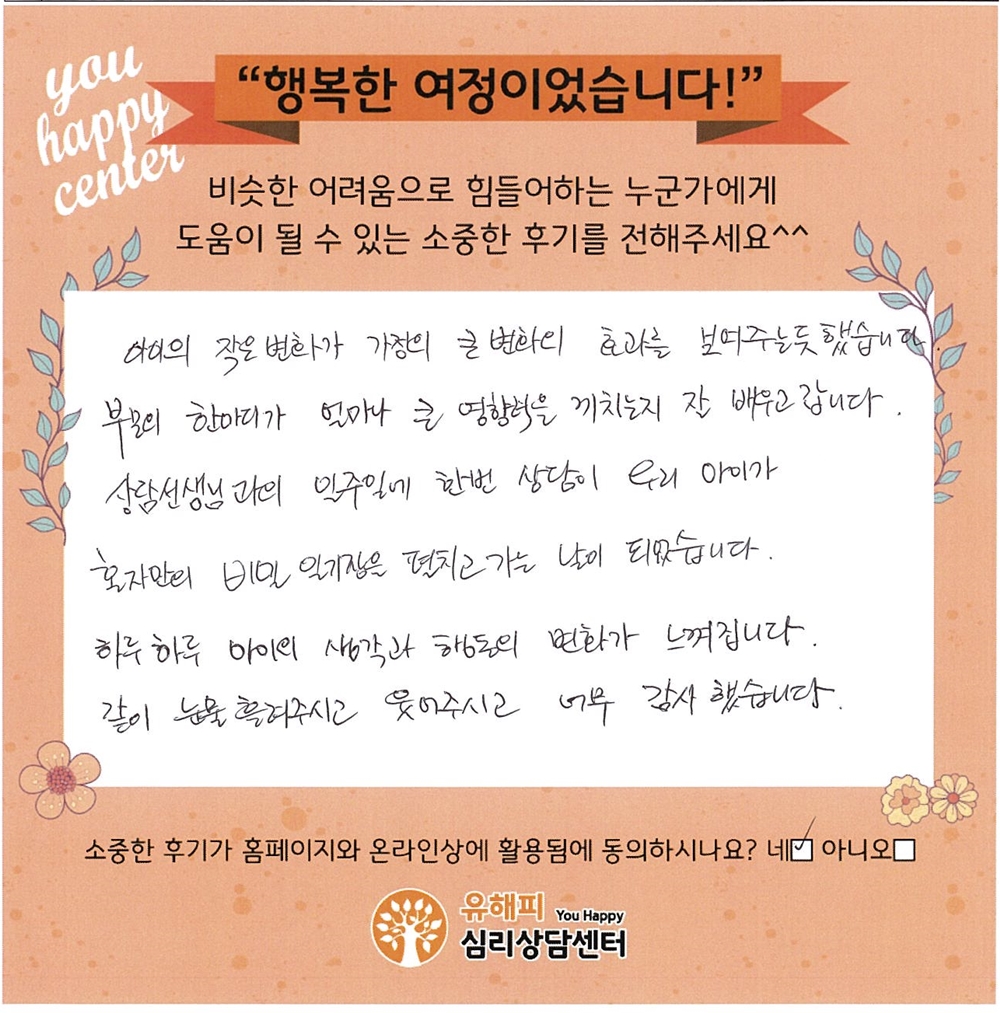 you
happy
center
“행복한 여정이었습니다!”
비슷한 어려움으로 힘들어하는 누군가에게
도움이 될 수 있는 소중한 후기를 전해주세요^^
아이의 작은변화가 가정의 큰변화의 효과를 보여주는듯했습니다
부모의 한마디가 얼마나 큰 영향력을 끼치는지 잘 배우고갑니다.
상담선생님과의 일주일에 한번 상담이 우리 아이가
혼자만의 비밀 일기장을 펼치고가는 날이 되었습니다.
하루하루 아이의 생각과 행동의 변화가 느껴집니다.
같이 눈물흘려주시고 웃어주시고 너무 감사했습니다.
소중한 후기가 홈페이지와 온라인상에 활용됨에 동의하시나요? 네☑ 아니오☐
유해피 You Happy
심리상담센터